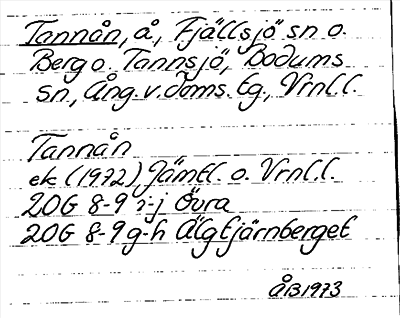 Tannån, å, Fjällsjö sn o.
Berg o. Tannsjö, Bodums
sn, Ång. v. doms. lg., Vrnl.l.
Tannån
ek (1972) Jämtl. o. Vrnl.l.
20G 8-9 i-j Övra
20G 8-9 g-h Älgtjärnberget
ÅB 1973